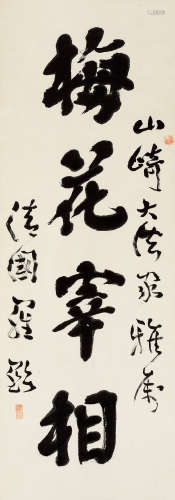 梅花宰相
山崎大法家雅属
清國羅